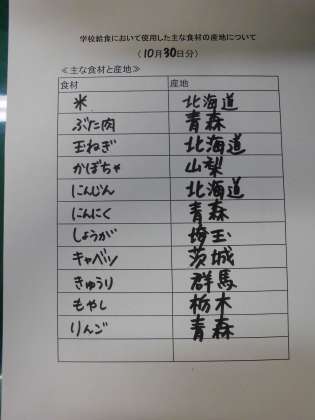 学校給食において使用した主な食材の産地について
（10月30日分）
≪主な食材と産地≫
食材 産地
米 北海道
ぶた肉 青森
玉ねぎ 北海道
かぼちゃ 山梨
にんじん 北海道
にんにく 青森
しょうが 埼玉
キャベツ 茨城
きゅうり 群馬
もやし 栃木
りんご 青森